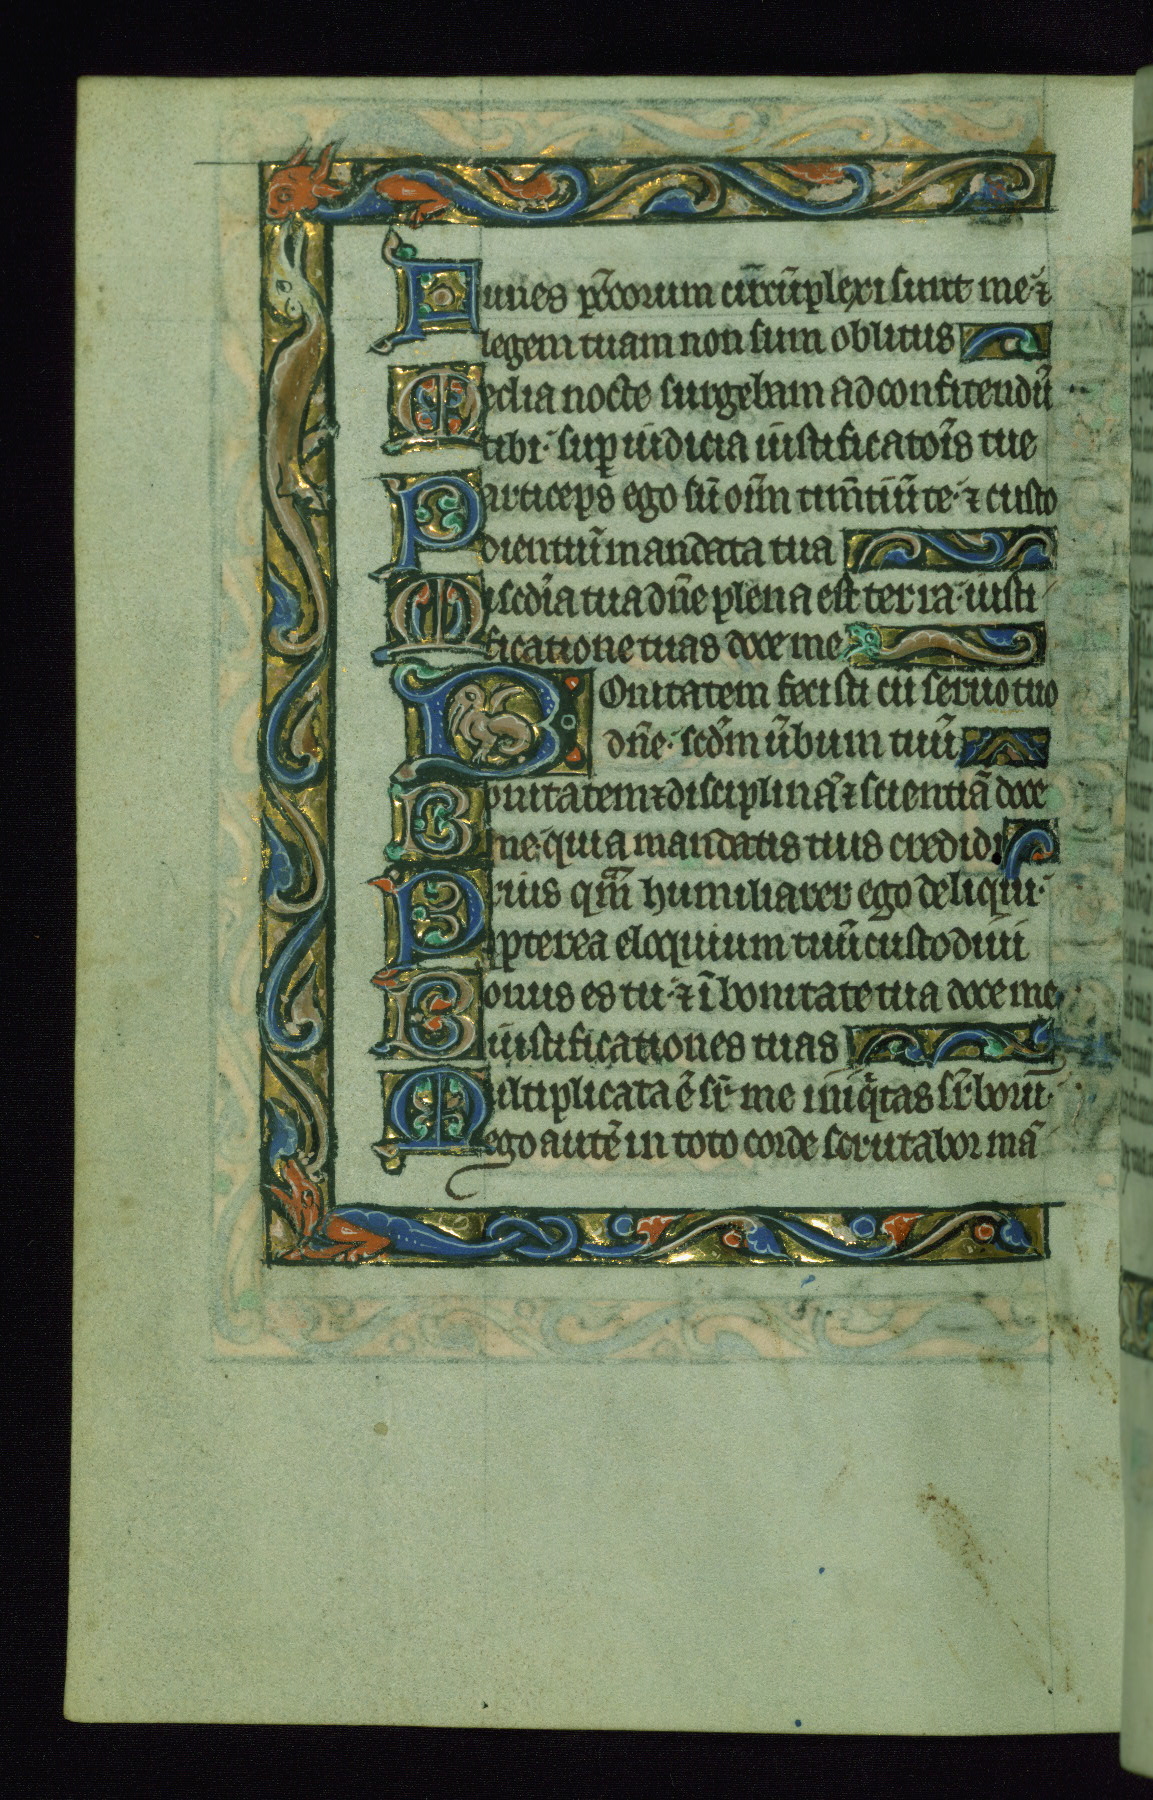 Funes pc̄corum circūplexi sunt me· ⁊
legem tuam non sum oblitus
Media nocte surgebam ad confitendū
tibi· sup iudicia iustificatōis tue
Particeps ego sū oīm timētiū te· ⁊ custo
dientiū mandata tua
Misedīa tua dn̄e plena est terra· iusti
ficatione tuas doce me
BOnitatem fecisti cū seruo tuo
dn̄e· scdm̄ ūbum tuū
Bonitatem ⁊ disciplinā ⁊ scientiā doce
me· quia mandatis tuis credidi
Prius qm̄ humiliarer ego deliqui·
ppterea eloquium tuū custodiui
Bonus es tu· ⁊ ī bonitate tua doce me
iustificationes tuas
Multiplicata ē sr̄ me iniq̄tas sr̄borū·
ego autē in toto corde scrutabor mā